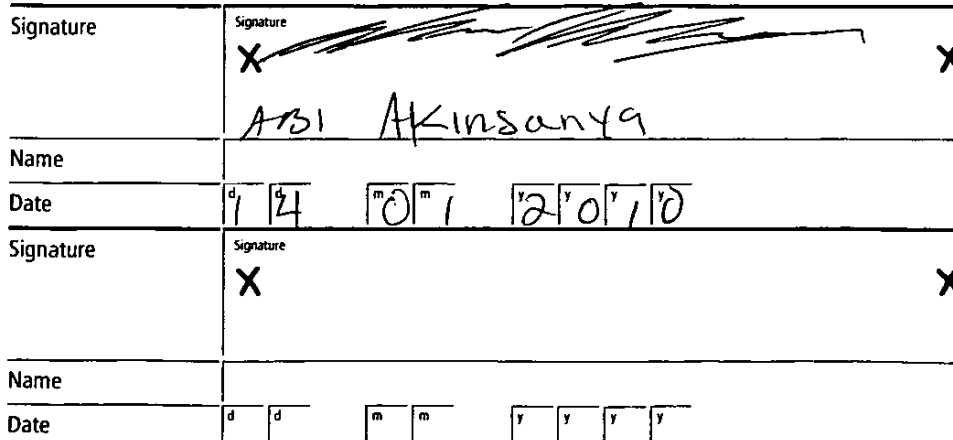 Signature
Signature
X X
ABI Akinsanya
Name
Date d1 d4 m0 m1 y2 y0 y1 y0
Signature
Signature
X X
Name
Date d d m m y y y y